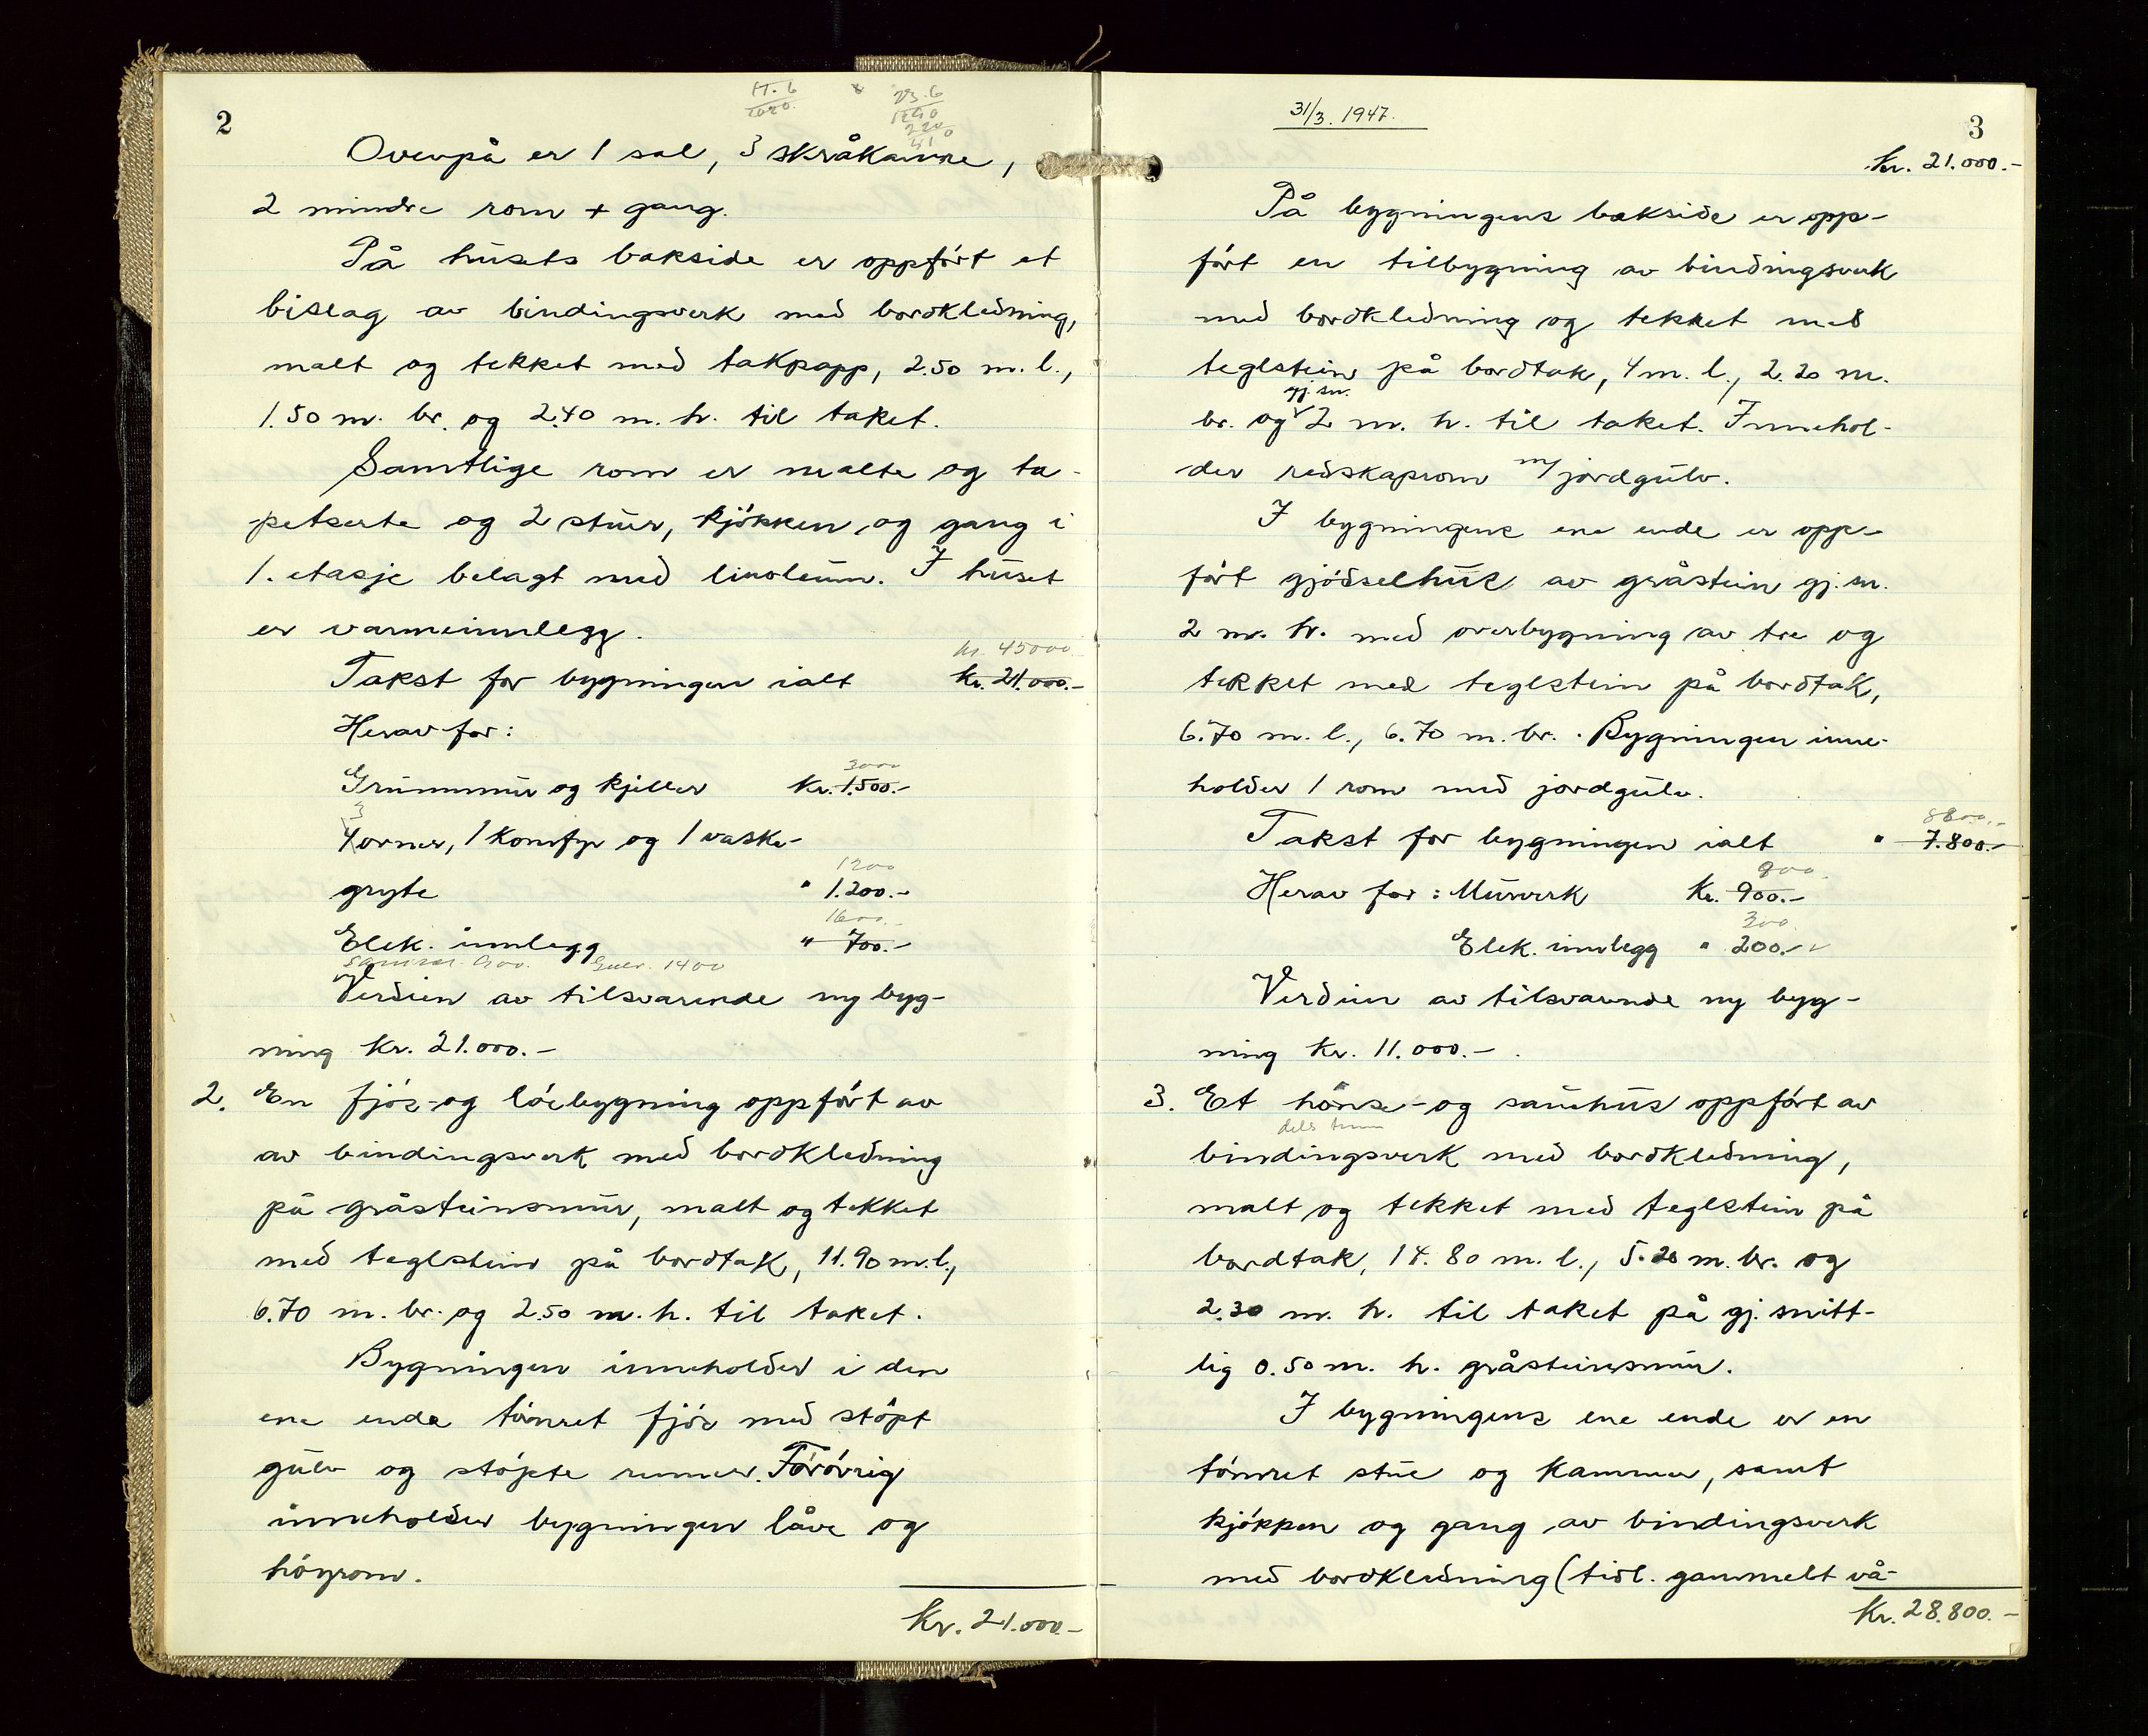 2
Ovenpå er 1 sal, 3 skråkamre,
2 mindre rom + gang.
På husets bakside er oppført et
bislag av bindingsverk med bordkledning,
malt og tekket med takpapp, 2.50 m. l.,
1.50 m. br. og 2.40 m. h. til taket.
Samtlige rom er malte og ta-
petserte og 2 stuer, kjøkken og gang i
1. etasje belagt med linoleum. I huset
er varmeinnlegg.
kr. 45000
Takst for bygningen ialt kr. 21.000.-
Herav for:
3000
Grunnmur og kjeller kr. 1.500.-
3
4 ovner, 1 komfyr og 1 vaske-
1200
gryte " 1.200.-
1600
Elek. innlegg " 700.-
1400
Verdien av tilsvarende ny byg-
ning kr. 21.000.-
2. En fjøs- og løebygning oppført av
av bindingsverk med bordkledning
på gråsteinsmur, malt og tekket
med teglstein på bordtak, 11.90 m. l.,
6.70 m. br. og 2.50 m. h. til taket.
Bygningen inneholder i den
ene ende tømret fjøs med støpt
gulv og støpte renner. Forøvrig
inneholder bygningen låve og
høyrom.
Kr. 21.000.-
31/3. 1947.
3
Kr. 21.000.-
På bygningens bakside er opp-
ført en tilbygning av bindingsverk
med bordkledning og tekket med
teglstein på bordtak, 4 m. l., 2.20 m.
gj. sn.
br. og 2 m. h. til taket. Innehol-
der redskapsrom m/ jordgulv.
I bygningens ene ende er opp-
ført gjødselhus av gråstein gj. sn.
2 m. h. med overbygning av tre og
tekket med teglstein på bordtak,
6.70 m. l., 6.70 m. br. . Bygningen inne-
holder 1 rom med jordgulv.
8800.-
Takst for bygningen ialt " 7.800.-
900
Herav for: Murverk Kr. 900.-
300
Elek. innlegg " 200.-
Verdien av tilsvarende ny byg-
ning kr. 11.000.- .
3. Et hønse- og sauehus oppført av
dels
bindingsverk med bordkledning,
malt og tekket med teglstein på
bordtak, 14.80 m. l., 5.20 m. br. og
2.30 m. h. til taket på gj. snitt-
lig 0.50 m. h. gråsteinsmur.
I bygningens ene ende er en
tømret stue og kammer, samt
kjøkken og gang av bindingsverk
med bordkledning (tidl. gammelt vå-
Kr. 28.800.-